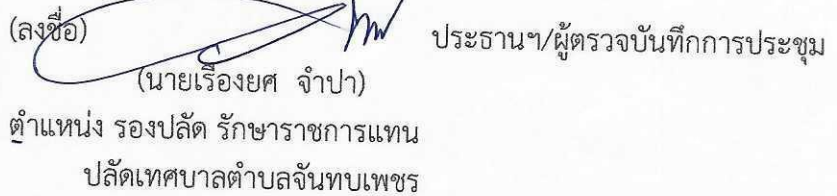 (ลงชื่อ) ประธานฯ/ผู้ตรวจบันทึกการประชุม
(นายเรืองยศ จำปา)
ตำแหน่ง รองปลัด รักษาราชการแทน
ปลัดเทศบาลตำบลจันทบเพชร